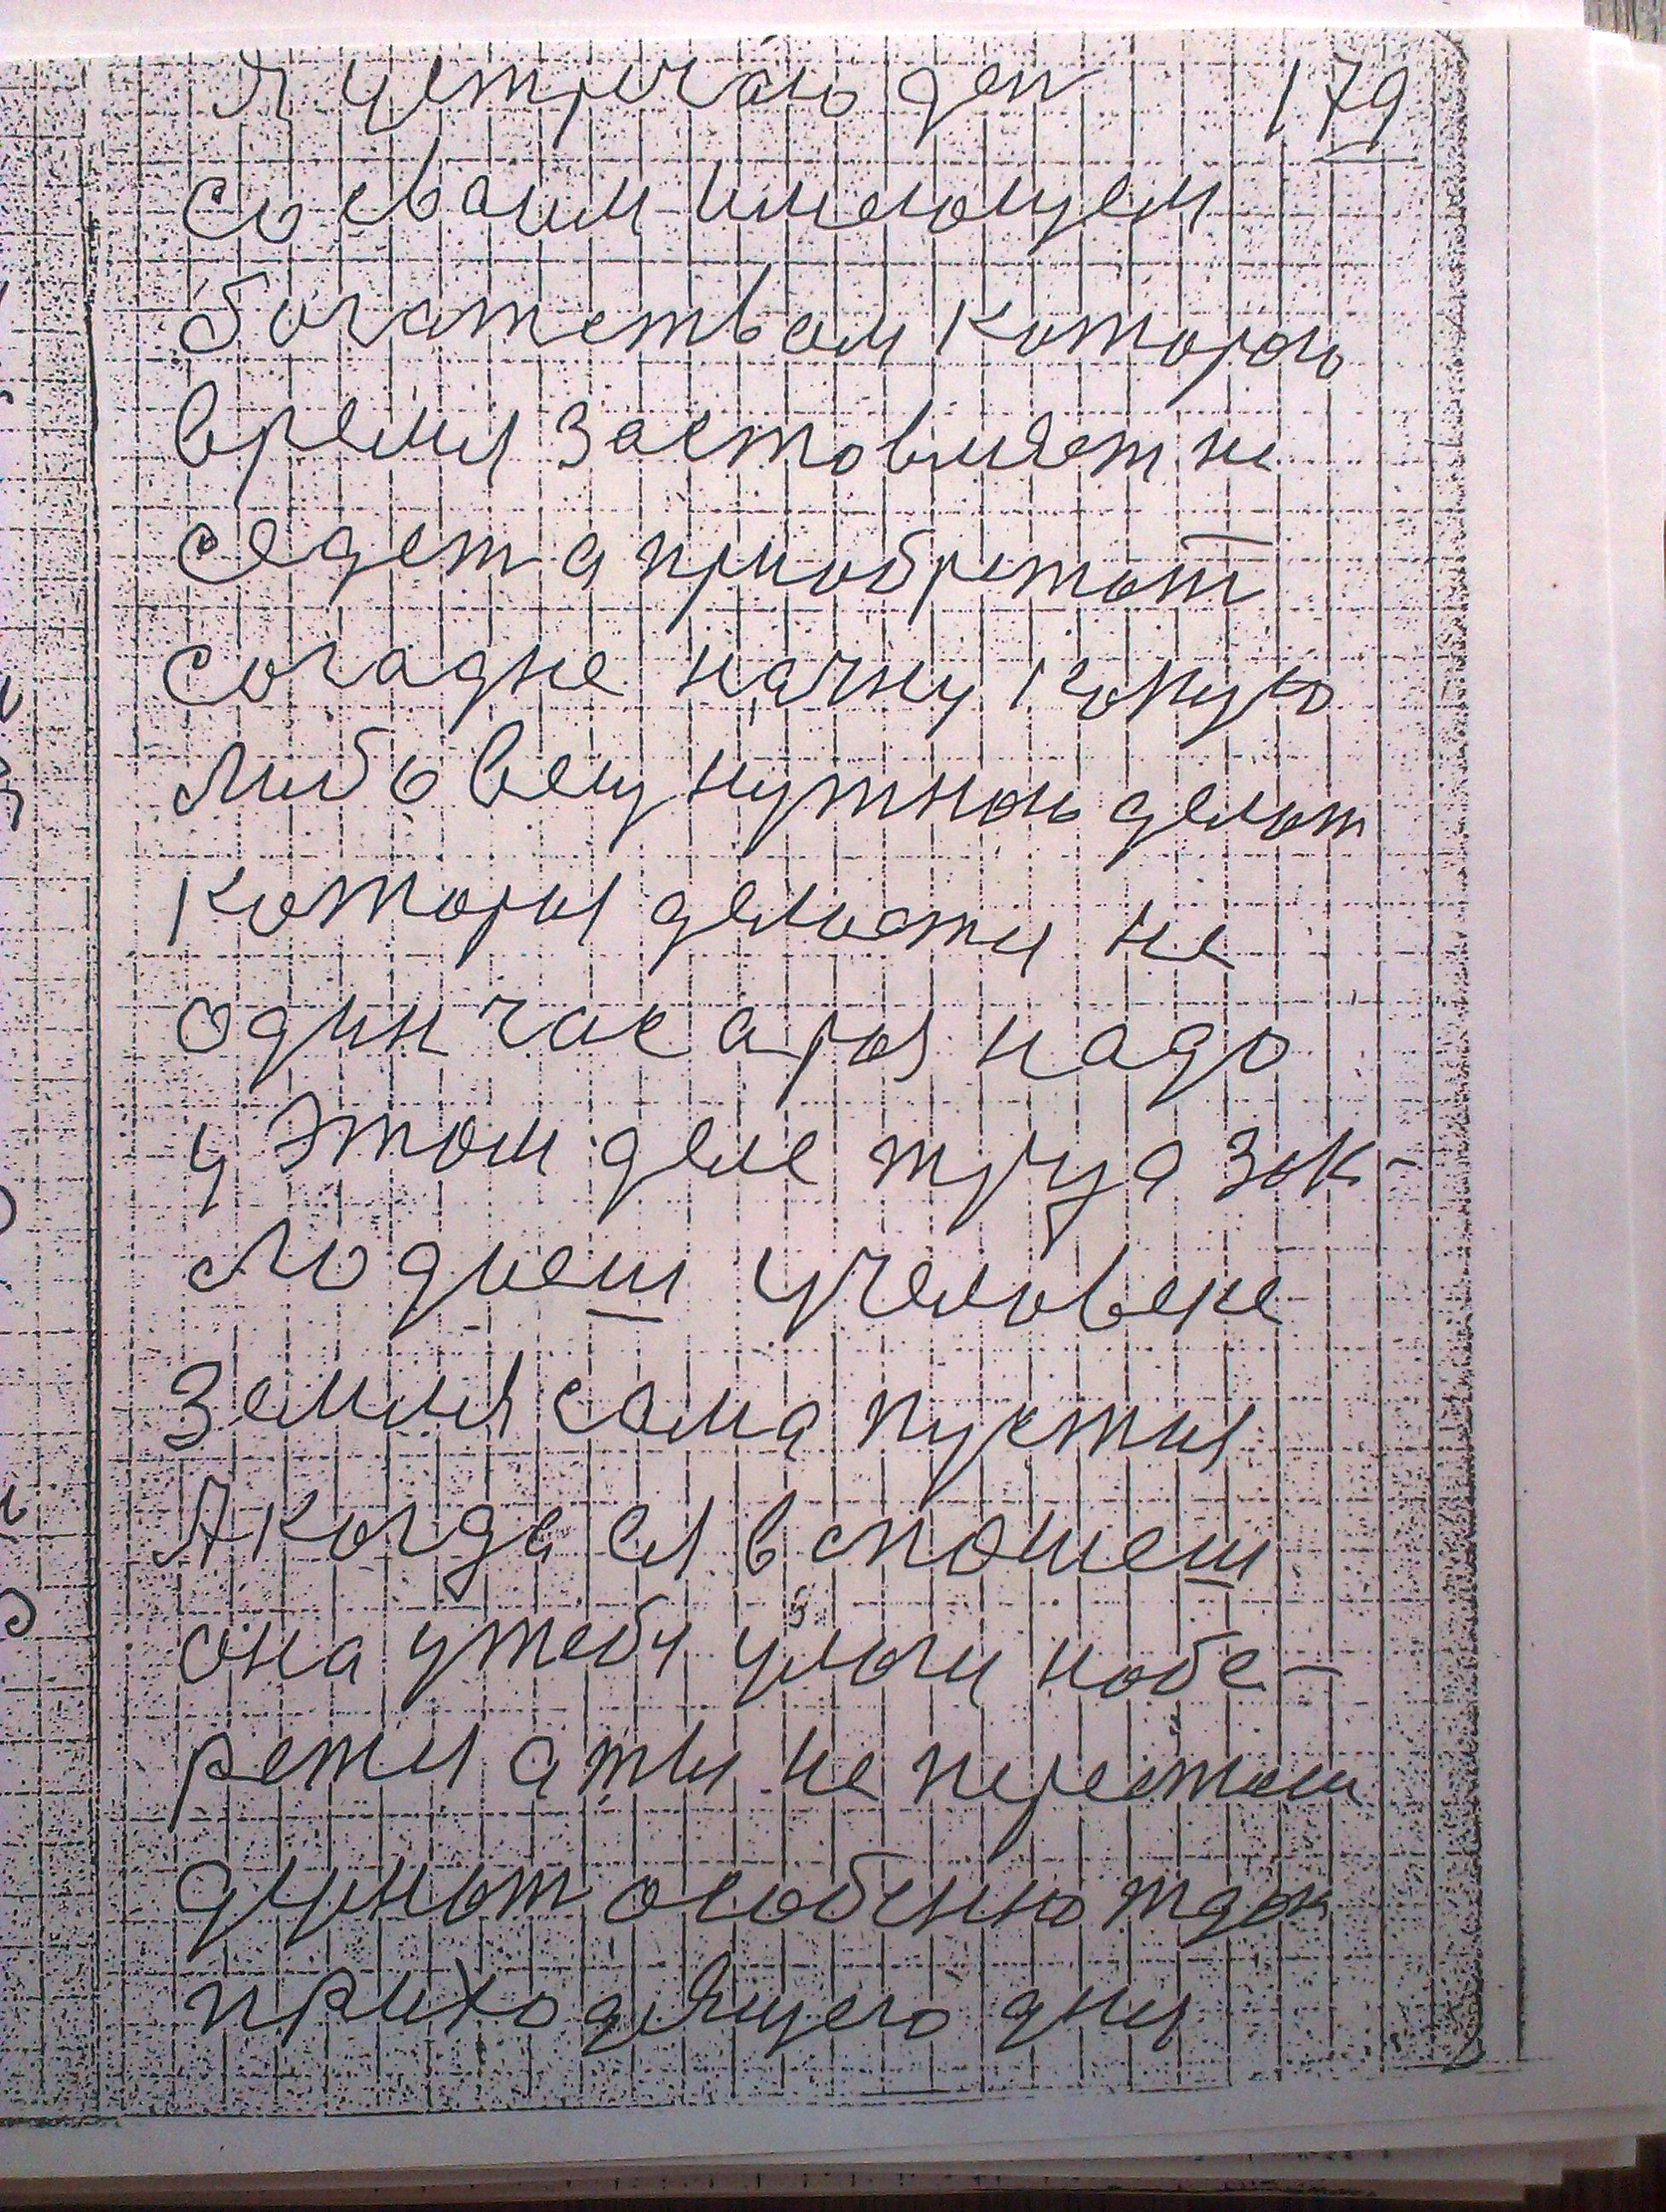 Я устричаю ден 179
со сваим имеющем
богатством которою
время застовляет не
седет а приобретат
согадне начну какую
либо вещ нужною делат
которыя делаеты не
один час а раз надо
у этом деле труда зак-
ладиеш у человеке
Земля сама пустыя
А когда ея вспошеш
она у тебя улоги набе-
ретея а ты не перестаеш
думат особенно ждат
приходящего дня